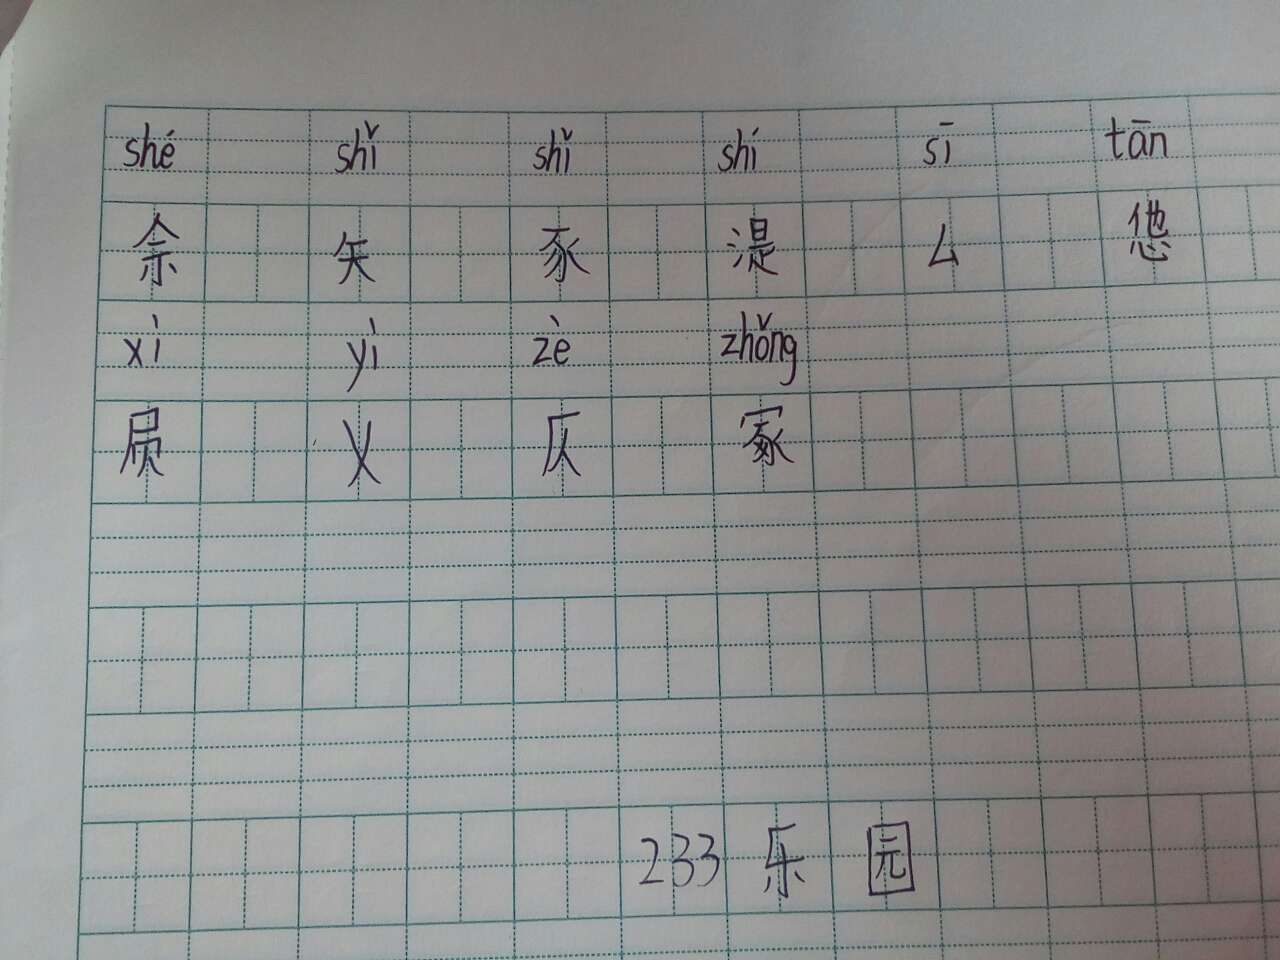 shé shǐ shǐ shí sī tān
佘 矢 豕 湜 厶 怹
xì yì zè zhǒng
屃 乂 仄 冢
233 乐 园